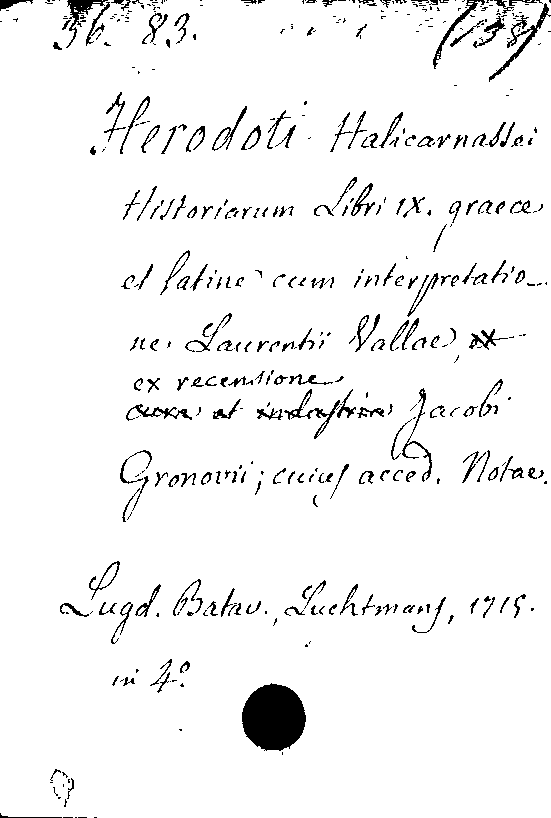 36. 83. (138)
Herodoti Halicarnassei
Historiarum Libri IX. graece
et latine cum interpretatio_
ne Laurentii Vallae, ex
ex recensione
cura et industria Jacobi
Gronovii; cuius acced. Notae.
Lugd. Batav., Luchtmans, 1715.
in 4º.